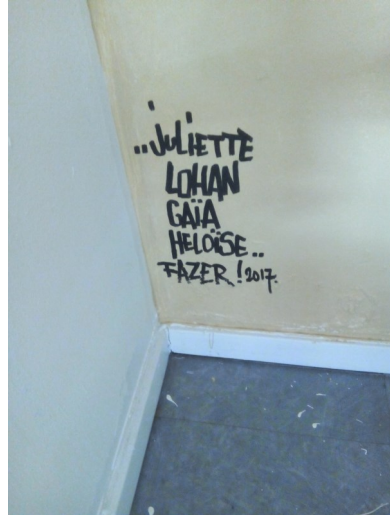 ..JULIETTE
LOHAN
GAÏA
HELOÏSE..
FAZER! 2017.